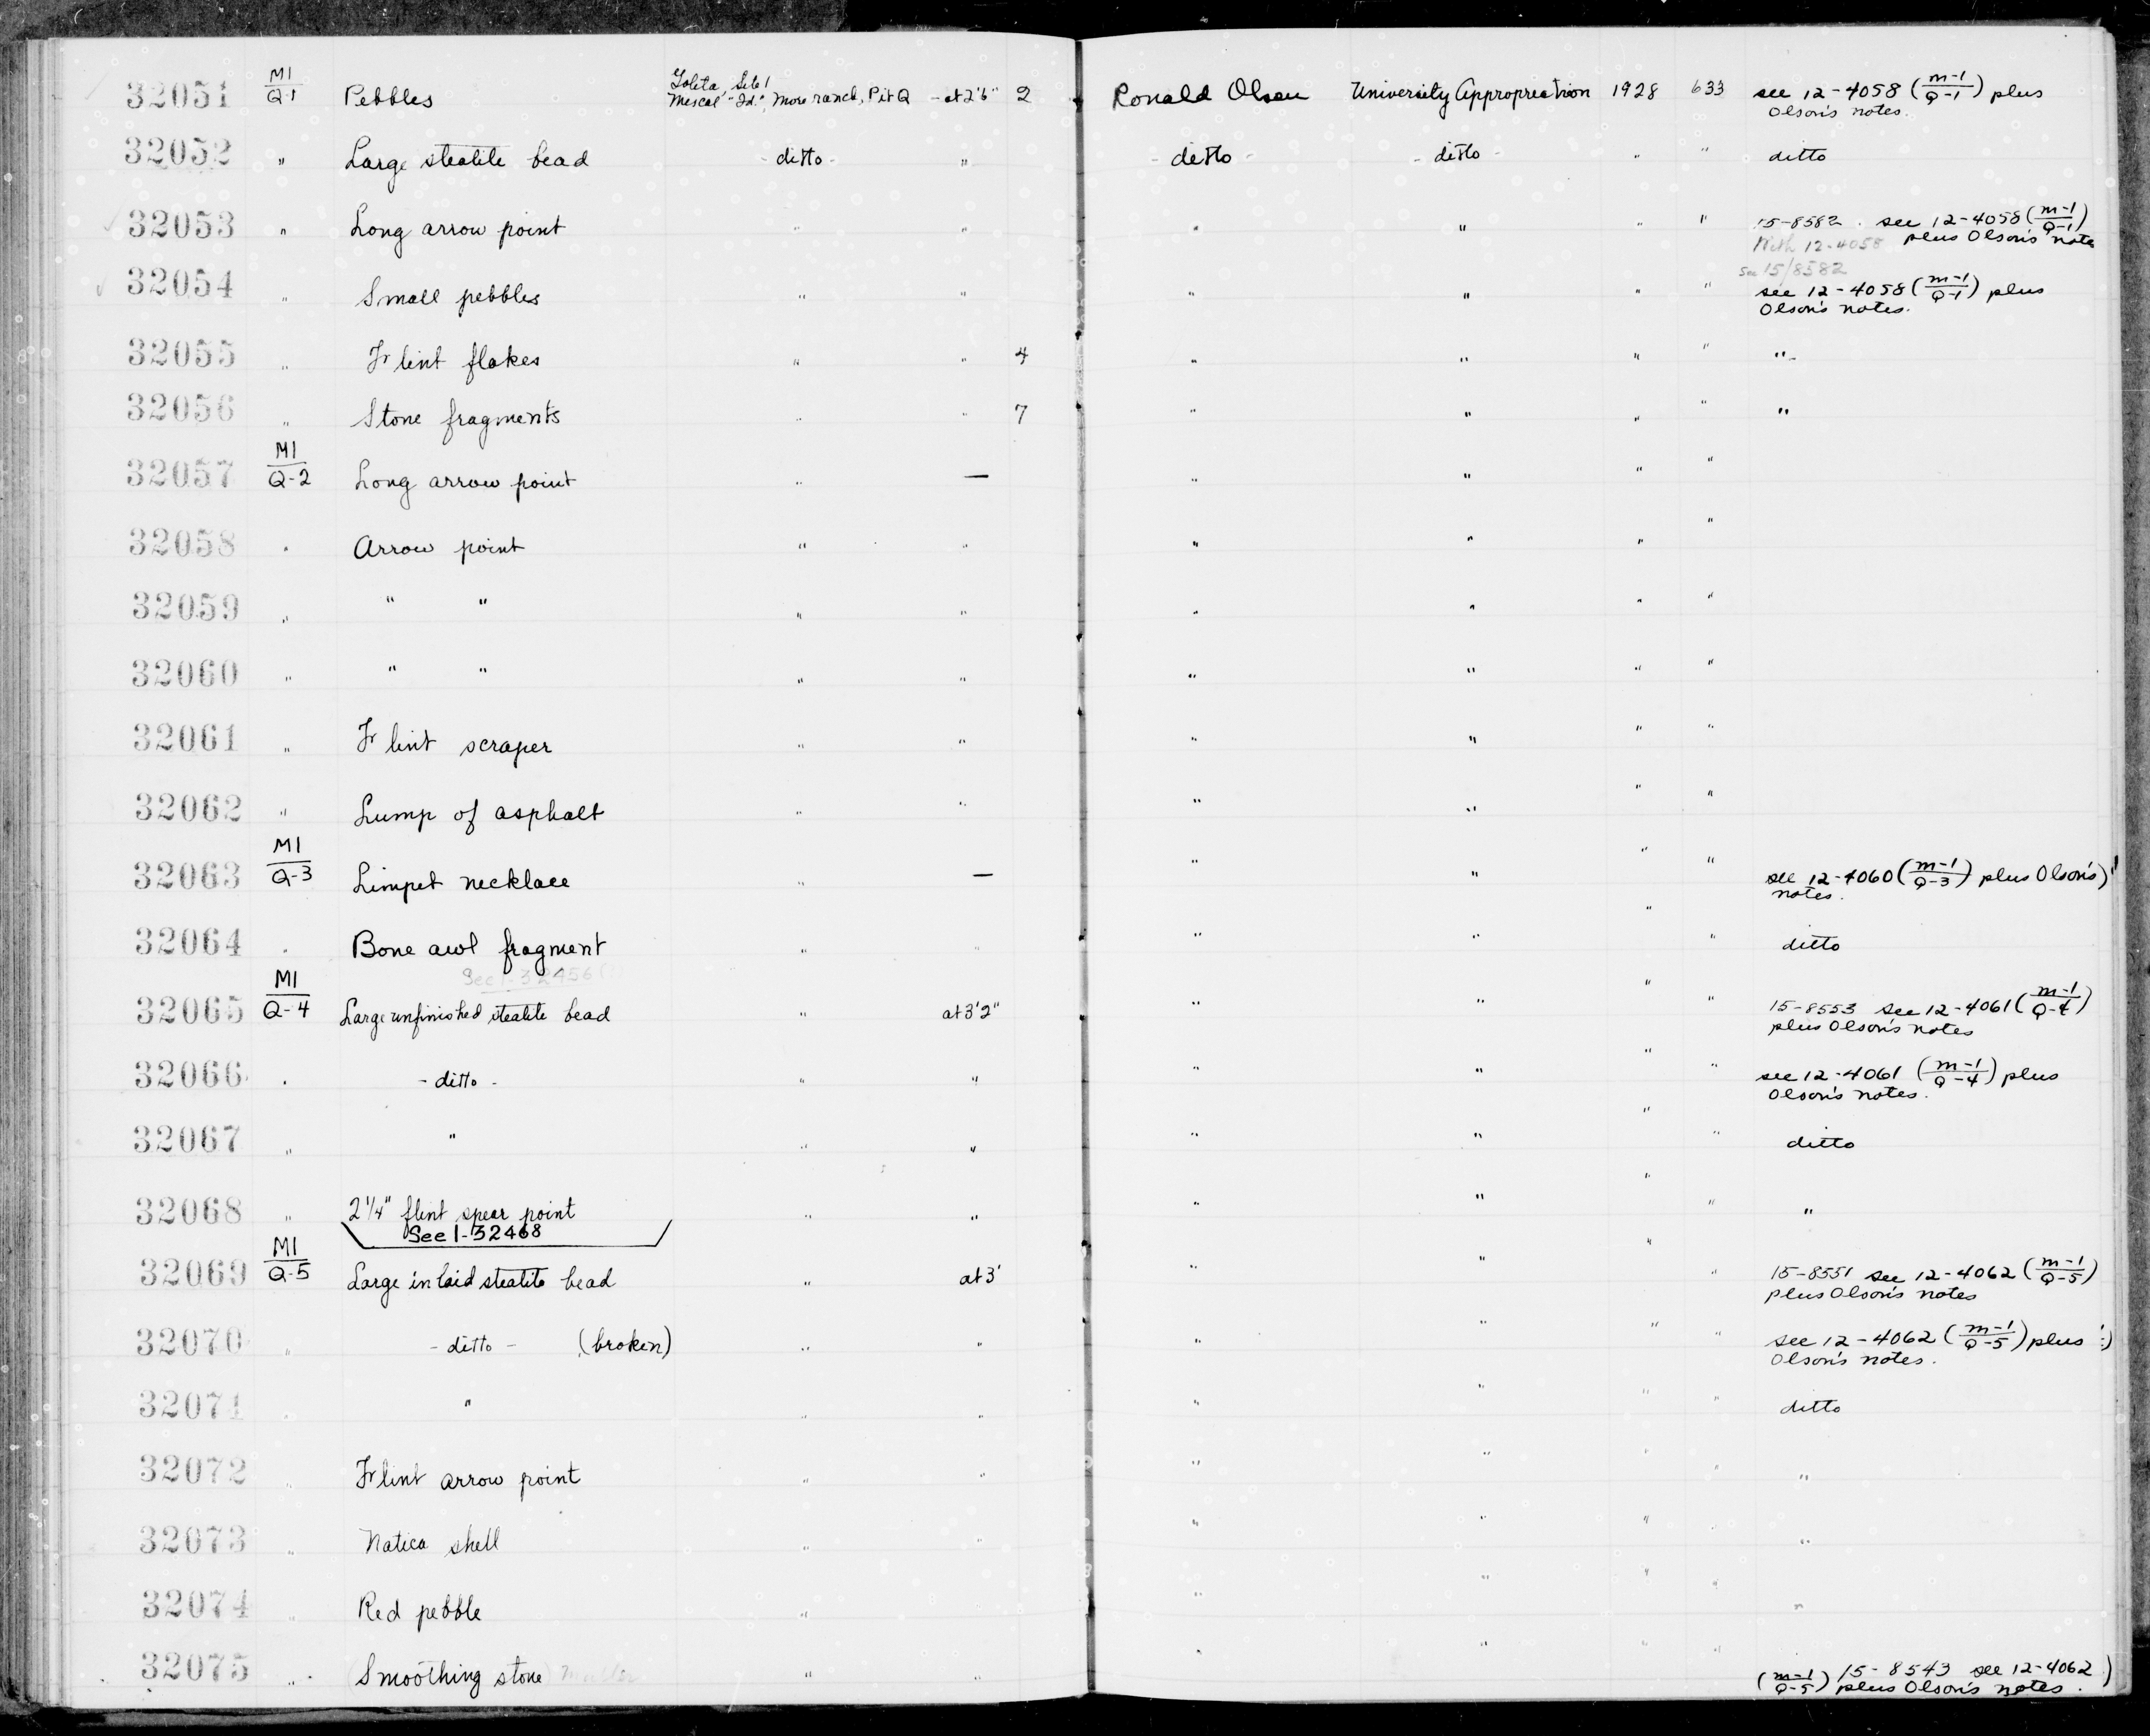 32051 M1/Q-1 Pebbles Goleta, Site 1 Mescal "Id.", More ranch, Pit Q - at 2'6" 2 Ronald Olson University Appropriation 1928 633 see 12-4058 (m-1/Q-1) plus
Olson's notes.
32052 " Large steatite bead - ditto - " - ditto - - ditto - " " ditto
32053 " Long arrow point " " " " " " 15-8582. see 12-4058 (m-1/Q-1)
With 12-4058 plus Olson's note
See 15/8582
32054 " Small pebbles " " " " " " see 12-4058 (m-1/Q-1) plus
Olson's notes.
32055 " Flint flakes " " 4 " " " " "
32056 " Stone fragments " " 7 " " " " "
32057 M1/Q-2 Long arrow point " — " " " "
32058 " Arrow point " " " " " "
32059 " " " " " " " " "
32060 " " " " " " " " "
32061 " Flint scraper " " " " " "
32062 " Lump of asphalt " " " " " "
32063 M1/Q-3 Limpet necklace " — " " " " see 12-4060 (m-1/Q-3) plus Olson's)
notes.
32064 " Bone awl fragment " " " " " " ditto
See 1-32456 (?)
32065 M1/Q-4 Large unfinished steatite bead " at 3'2" " " " " 15-8553 see 12-4061 (m-1/Q-4)
plus Olson's notes
32066 " - ditto - " " " " " " see 12-4061 (m-1/Q-4) plus
Olson's notes.
32067 " " " " " " " " ditto
32068 " 2 1/4" flint spear point " " " " " " "
See 1-32468
32069 M1/Q-5 Large inlaid steatite bead " at 3' " " " " 15-8551 see 12-4062 (m-1/Q-5)
plus Olson's notes
32070 " - ditto - (broken) " " " " " " see 12-4062 (m-1/Q-5) plus
Olson's notes.
32071 " " " " " " " " ditto
32072 " Flint arrow point " " " " " " "
32073 " Natica shell " " " " " " "
32074 " Red pebble " " " " " " "
32075 " (Smoothing stone) Muller " " " " " " 15-8543 see 12-4062)
(m-1/Q-5) plus Olson's notes.